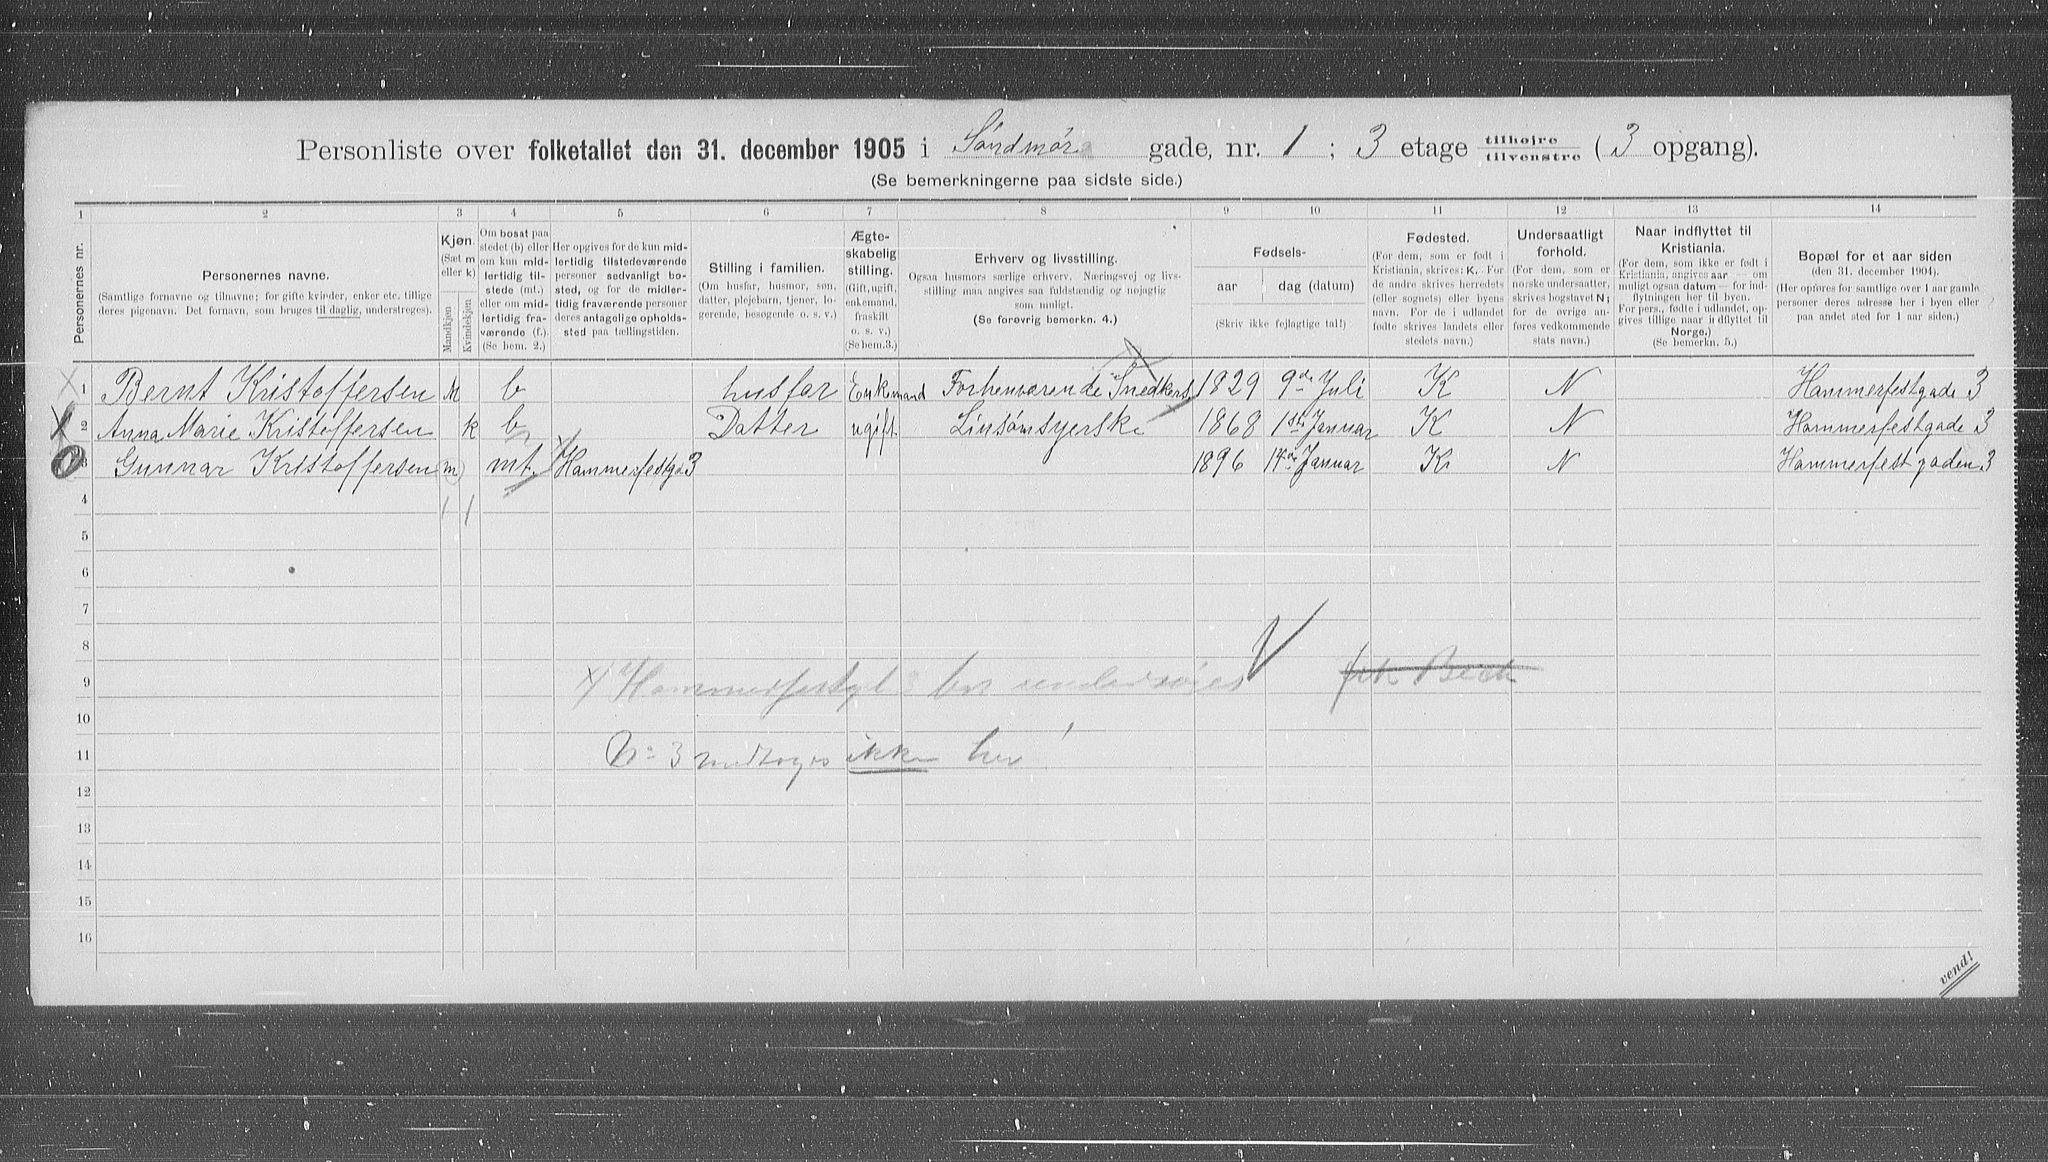 Personliste over folketallet den 31. december 1905 i Söndmör gade, nr. 1 ; 3 etage tilhøjre / tilvenstre (3 opgang).
(Se bemerkningerne paa sidste side.)
1 2 3 4 5 6 7 8 9 10 11 12 13 14
Personernes nr.
Personernes navne.
(Samtlige fornavne og tilnavne; for gifte kvinder, enker etc. tillige
deres pigenavn. Det fornavn, som bruges til daglig, understreges).
Kjøn.
(Sæt m
eller k)
Mandkjøn
Kvindekjøn
Om bosat paa
stedet (b) eller
om kun mid-
lertidig til-
stede (mt.)
eller om mid-
lertidig fra-
værende (f.)
(Se bem. 2.)
Her opgives for de kun mid-
lertidig tilstedeværende
personer sedvanligt bo-
sted, og for de midler-
tidig fraværende personer
deres antagelige opholds-
sted paa tællingstiden.
Stilling i familien.
(Om husfar, husmor, søn,
datter, plejebarn, tjener, lo-
gerende, besøgende o. s. v.)
Ægte-
skabelig
stilling.
(Gift, ugift,
enkemand,
fraskilt
o. s. v.)
(Se bem.3.)
Erhverv og livsstilling.
Ogsaa husmors særlige erhverv. Næringsvej og livs-
stilling maa angives saa fuldstændig og nøjagtig
som muligt.
(Se forøvrig bemerkn. 4.)
Fødsels-
aar
dag (datum)
(Skriv ikke fejlagtige tal!)
Fødested.
(For dem, som er født i
Kristiania, skrives: K. For
de andre skrives herredets
(eller sognets) eller byens
navn. For de i udlandet
fødte skrives landets eller
stedets navn.)
Undersaatligt
forhold.
(For dem, som er
norske undersaatter,
skrives bogstavet N;
for de øvrige an-
føres vedkommende
stats navn.)
Naar indflyttet til
Kristiania.
(For dem, som ikke er født i
Kristiania, angives aar — om
muligt ogsaa datum — for ind-
flytningen her til byen.
For pers., fødte i udlandet, op-
gives tillige naar indflyttet til
Norge.)
(Se bemerkn. 5.)
Bopæl for et aar siden
(den 31. december 1904).
(Her opføres for samtlige over 1 aar gamle
personer deres adresse her i byen eller
paa andet sted for 1 aar siden.)
1 Bernt Kristoffersen M b husfar Enkemand Forhenværende Snedkers. 1829 9de Juli K N Hammerfestgade 3
2 Anna Marie Kristoffersen k b Datter ugift Linsömsyerske 1868 1ste Januar K N Hammerfestgade 3
3 Gunnar Kristoffersen m mt. Hammerfestga 3 1896 Januar K N Hammerfestgaden 3
4 1 1
5
6
7
8
9 x) Hammerfestgt 3 undersøges
10
11 No 3 medtages ikke her!
12
13
14
15
16
vend!